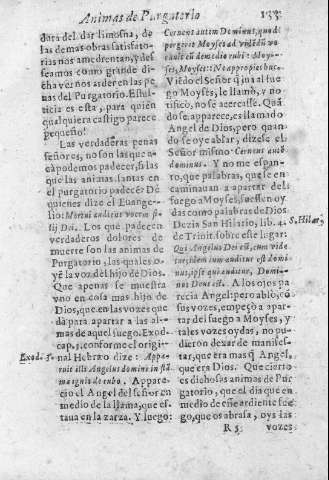 Animas de Purgatorio 133
dura del dar limosna, de
las demas obras satisfato-
rias nos amedrentan, y de-
seamos como grande di-
cha vernos arder en las pe-
nas del Purgatorio. Estul-
ticia es esta, para quien
qualquiera castigo parece
pequeño!
Las verdaderas penas
señores, no son las que a-
cà podemos padecer, si las
que las animas santas en
el purgatorio padecẽ: De
quienes dize el Euange-
lio: Mortui audient vocem fi-
lij Dei. Los que padecen
verdaderos dolores de
muerte son las animas de
Purgatorio, las quales o-
yẽ la voz del hijo de Dios.
Que apenas se muestra
vno en cosa mas hijo de
Dios, que en las vozes que
dà para apartar a las al-
mas de aquel fuego. Exod.
cap. conforme el origi-
Exod. 3. nal Hebrao dize: Appa-
ruit illi Angelus domini in flã
ma ignis de rubo. Appare-
cio el Angel del señor en
medio de la llama, que es-
taua en la zarza. Y luego:
Cernens autem Dominus, quod
pergeret Moyses ad vidẽdũ vo-
cauit eũ de medio rubi: Moy-
ses, Moyses: Ne appropies huc.
Viẽdo el Señor q̃ iua al fue
go Moyses, le llamò, y no
tificò, no se acercasse. Quã
do se apparece, es llamado
Angel de Dios, pero quan-
do se oye ablar, dizese el
Señor mismo: Cernens autẽ
dominus. Y no me espan-
to, que palabras, que se en
caminauan a apartar del
fuego a Moyses, suessen oy
das como palabras de Dios
Dezia San Hilario, lib. 4. S. Hilar.
de Trinit. sobre este lugar:
Qui Angelus Dei est, cum vide
tur, idem cum auditur est domi-
nus, ipse qui auditur, Domi-
nus Deus est. A los ojos pa
recia Angel: pero ablò, cõ
sus vozes, empeçò a apar-
tar del fuego a Moyses, y
tales vozes oydas, no pu-
dieron dexar de manifes-
tar, que era mas q̃ Angel,
que era Dios. Que cierto
es dichosas animas de Pur
gatorio, que el dia que en
medio de ese ardiente fue
go, que os abrasa, oys las
R 5 vozes